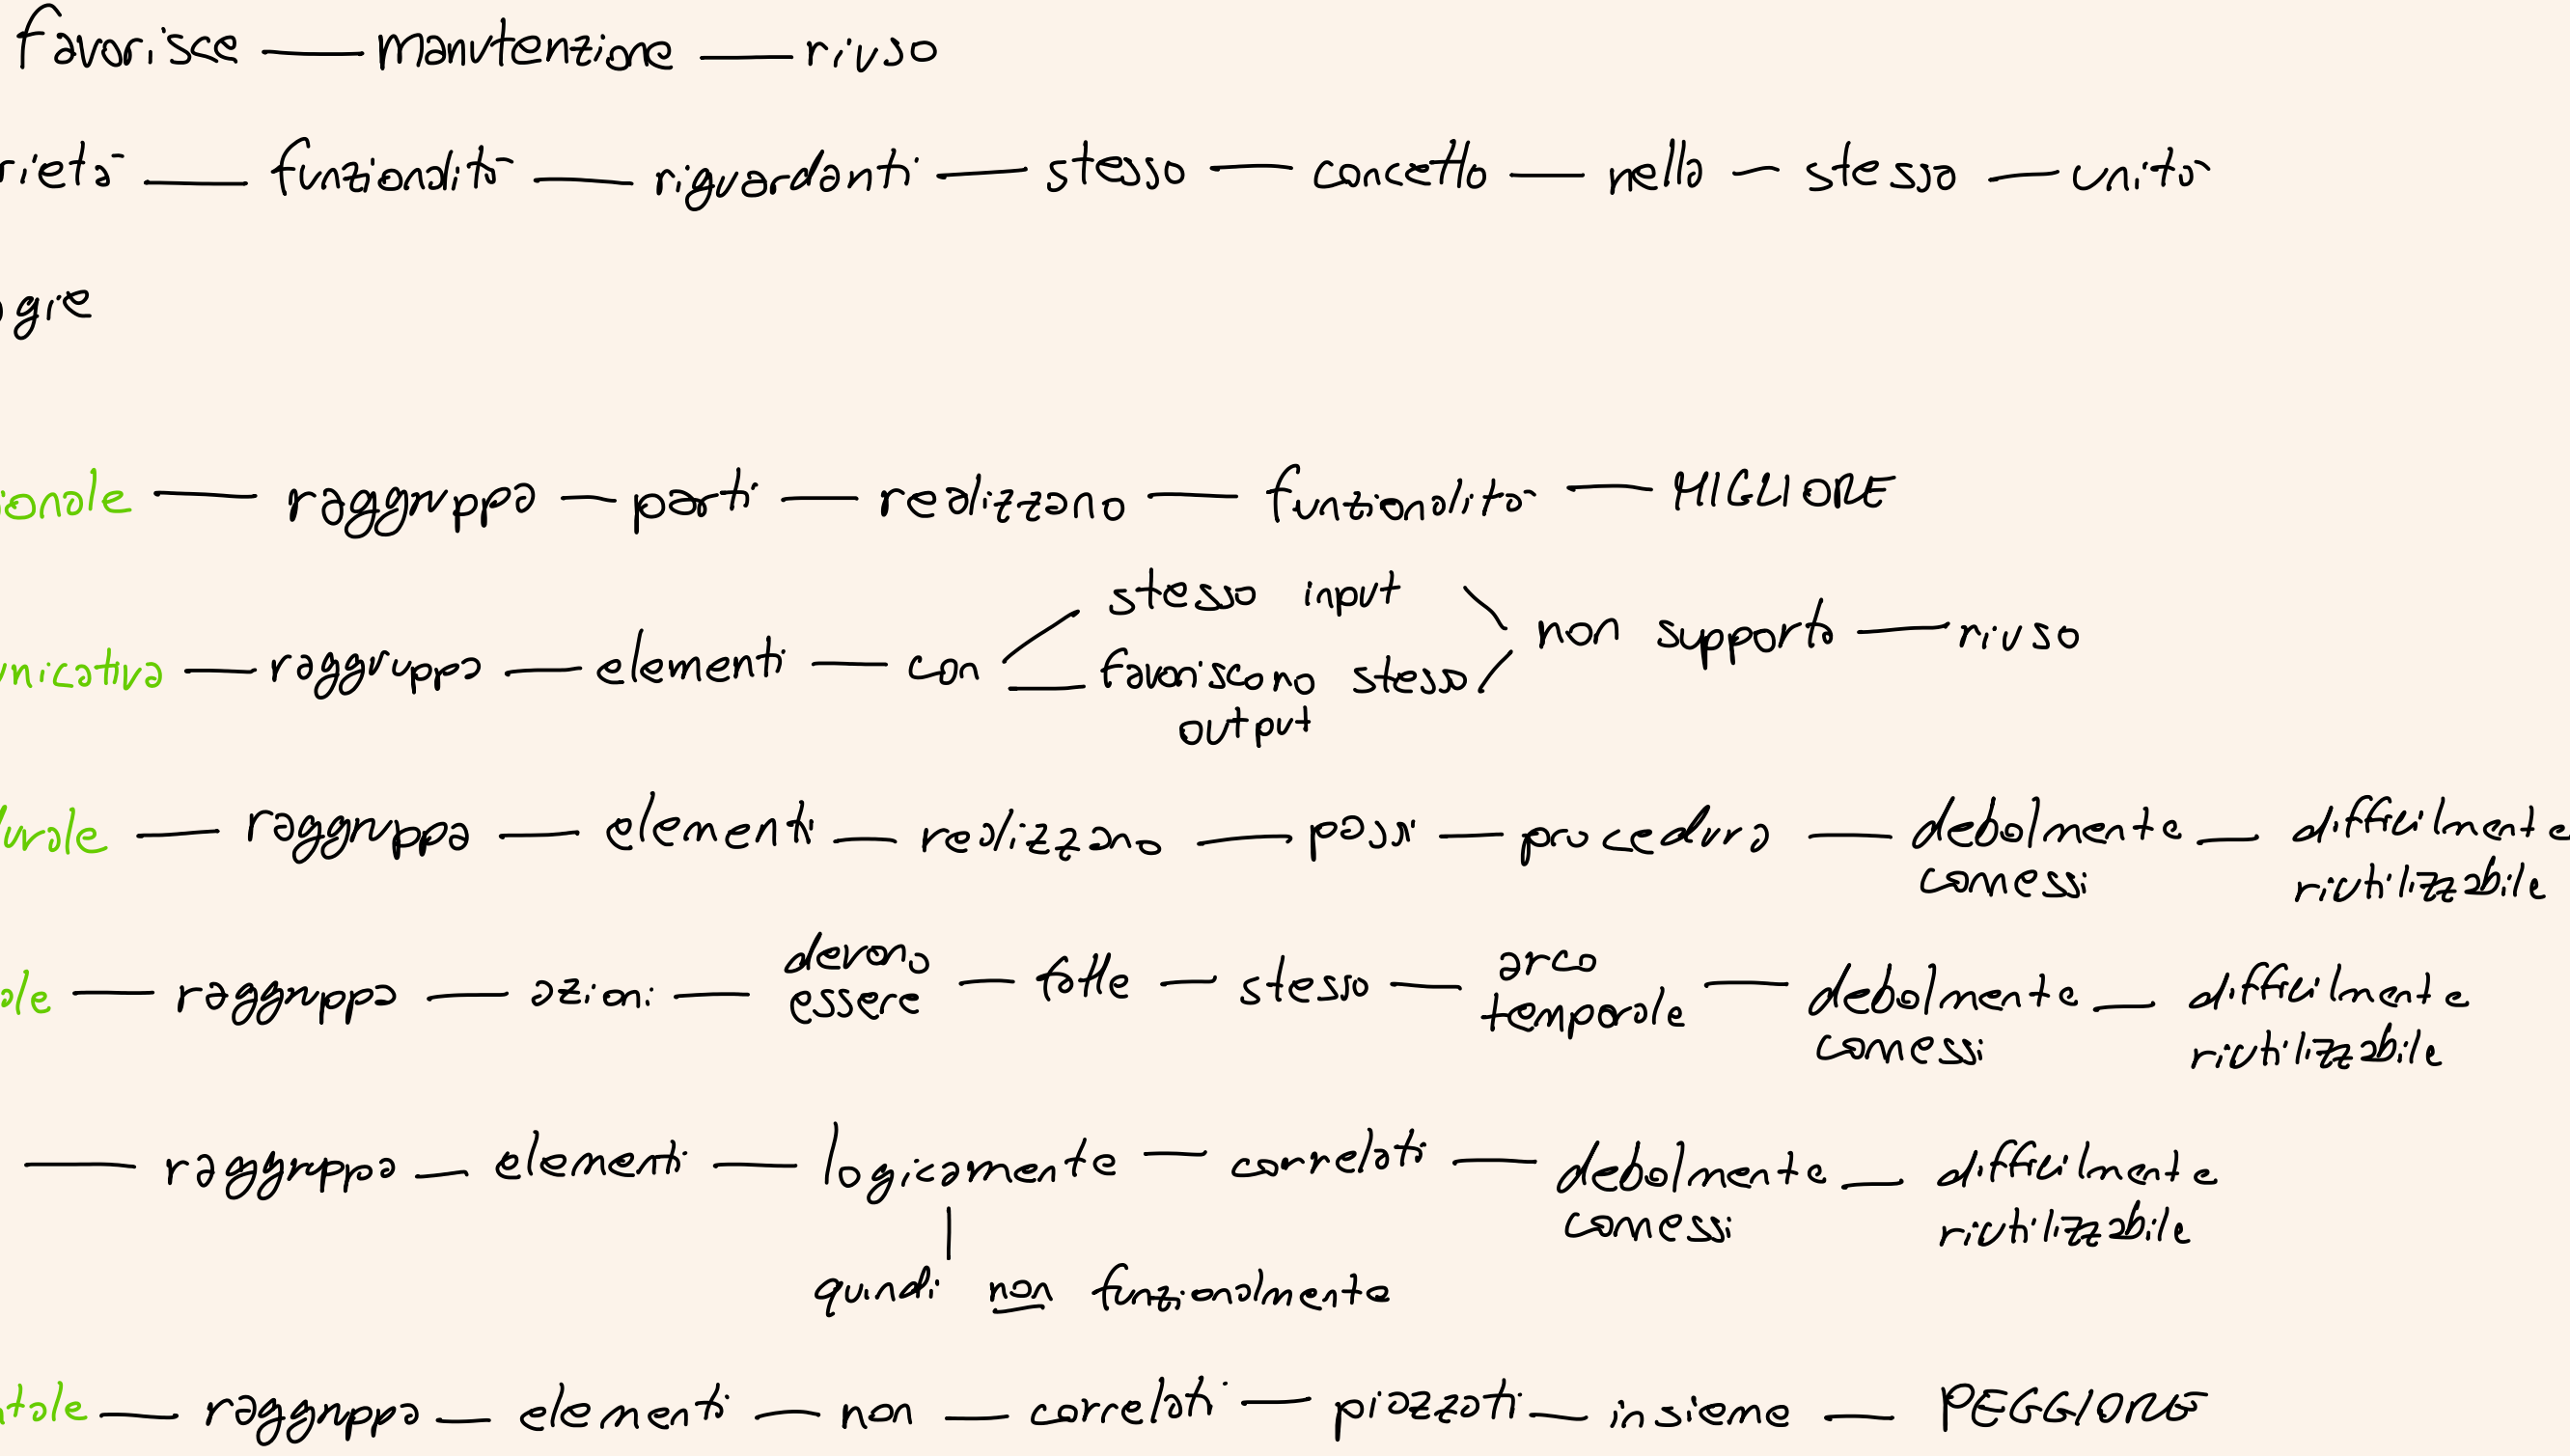 favorisce — manutenzione — riuso
rietà — funzionalità — riguardanti — stesso — concetto — nella — stessa — unità
ogie
ionale — raggruppa — parti — realizzano — funzionalità — MIGLIORE
stesso input
unicativa — raggruppa — elementi — con — favoriscono stesso output — non supporta — riuso
durale — raggruppa — elementi — realizzano — passi — procedura — debolmente connessi — difficilmente riutilizzabile
ale — raggruppa — azioni — devono essere — fatte — stesso — arco temporale — debolmente connessi — difficilmente riutilizzabile
— raggruppa — elementi — logicamente — correlati — debolmente connessi — difficilmente riutilizzabile
quindi non funzionalmente
ntale — raggruppa — elementi — non — correlati — piazzati — insieme — PEGGIORE